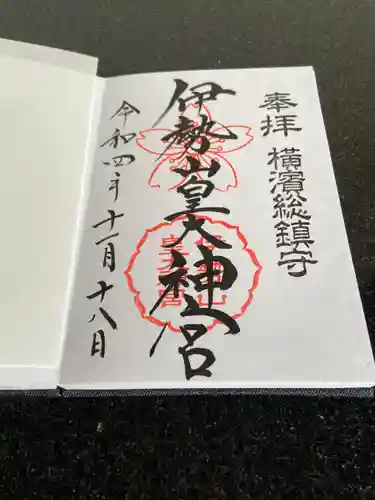 奉拝 横濱総鎮守
伊勢山皇大神宮
令和四年十一月十八日